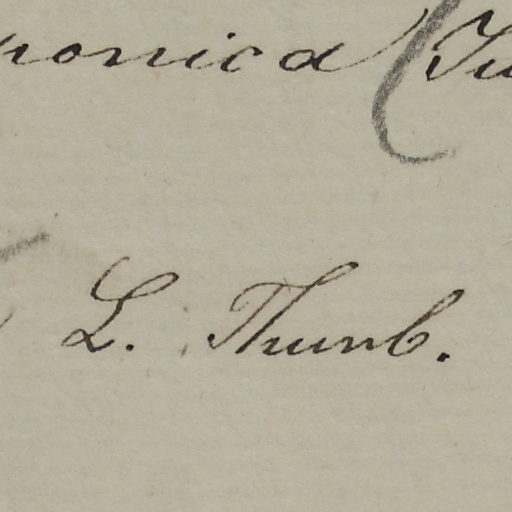 ponica (
L. Thunb.